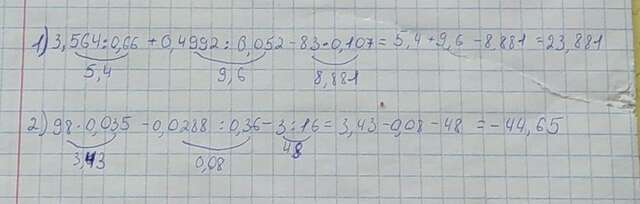 1) 3,564:0,66 + 0,4992:0,052 - 83·0,107 = 5,4 + 9,6 - 8,881 = 23,881
5,4 9,6 8,881
2) 98·0,035 - 0,0288:0,36 - 3:16 = 3,43 - 0,08 - 48 = -44,65
3,43 0,08 48